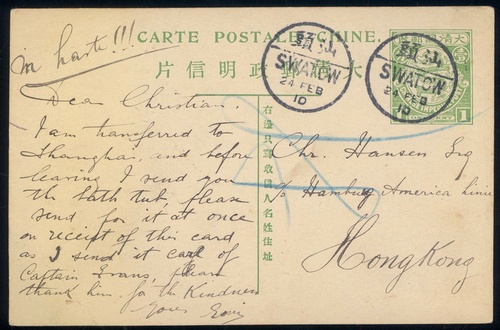 in haste!!!
CARTE POSTALE CHINE.
大清郵政明信片
汕頭
SWATOW
24 FEB
10
汕頭
SWATOW
24 FEB
10
1
右邊只寫收信人名姓住址
Dear Christian.
I am transferred to
Shanghai, and before
leaving I send you
the bath tub, please
send for it at once
on receipt of this card
as I send it of
Captain Evans, please
thank him for the Kindness
Yours
Chr. Hansen Esq
c/o Hamburg America Linie
HongKong